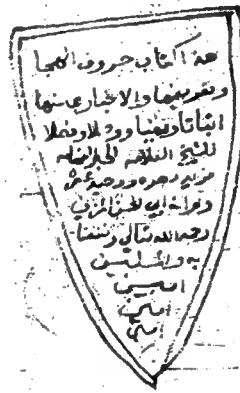 هذا كتاب حروف الهجا
وتعريفها والاخبار عنها
اثباتا ونفيا ووصلا وفصلا
للشيخ العلامه
فريد دهره ووحيد عصره
ابي الحسن المزني
رحمه الله تعالى ونفعنا
به والمسلمين
امين
امين
امين